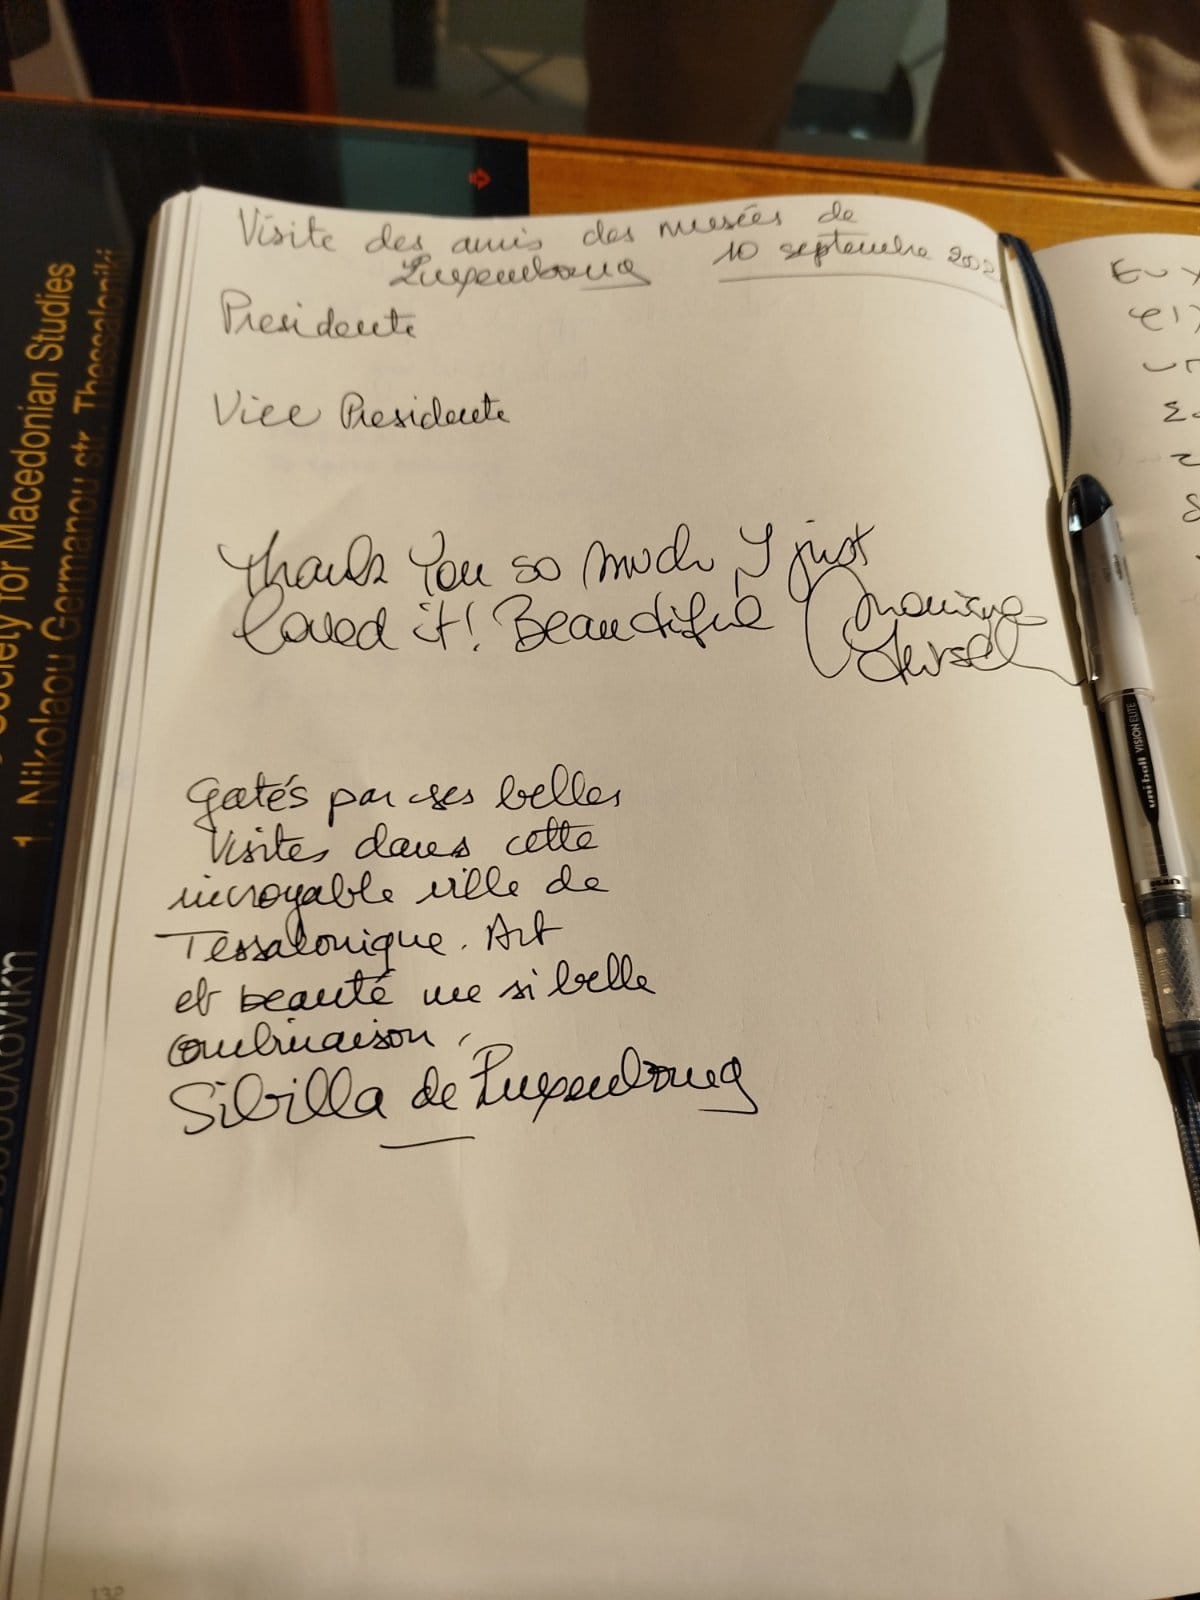 Visite des amis des musées de
Luxembourg 10 septembre 2002
Presidente
Vice Presidente
Thank You so much, I just
loved it! Beautiful Monique
Gatés par ses belles
Visites dans cette
incroyable ville de
Tessalonique. Art
et beauté une si belle
combinaison.
Sibilla de Luxembourg
Society for Macedonian Studies
1, Nikolaou Germanou str. Thessaloniki
uni-ball VISION ELITE
132